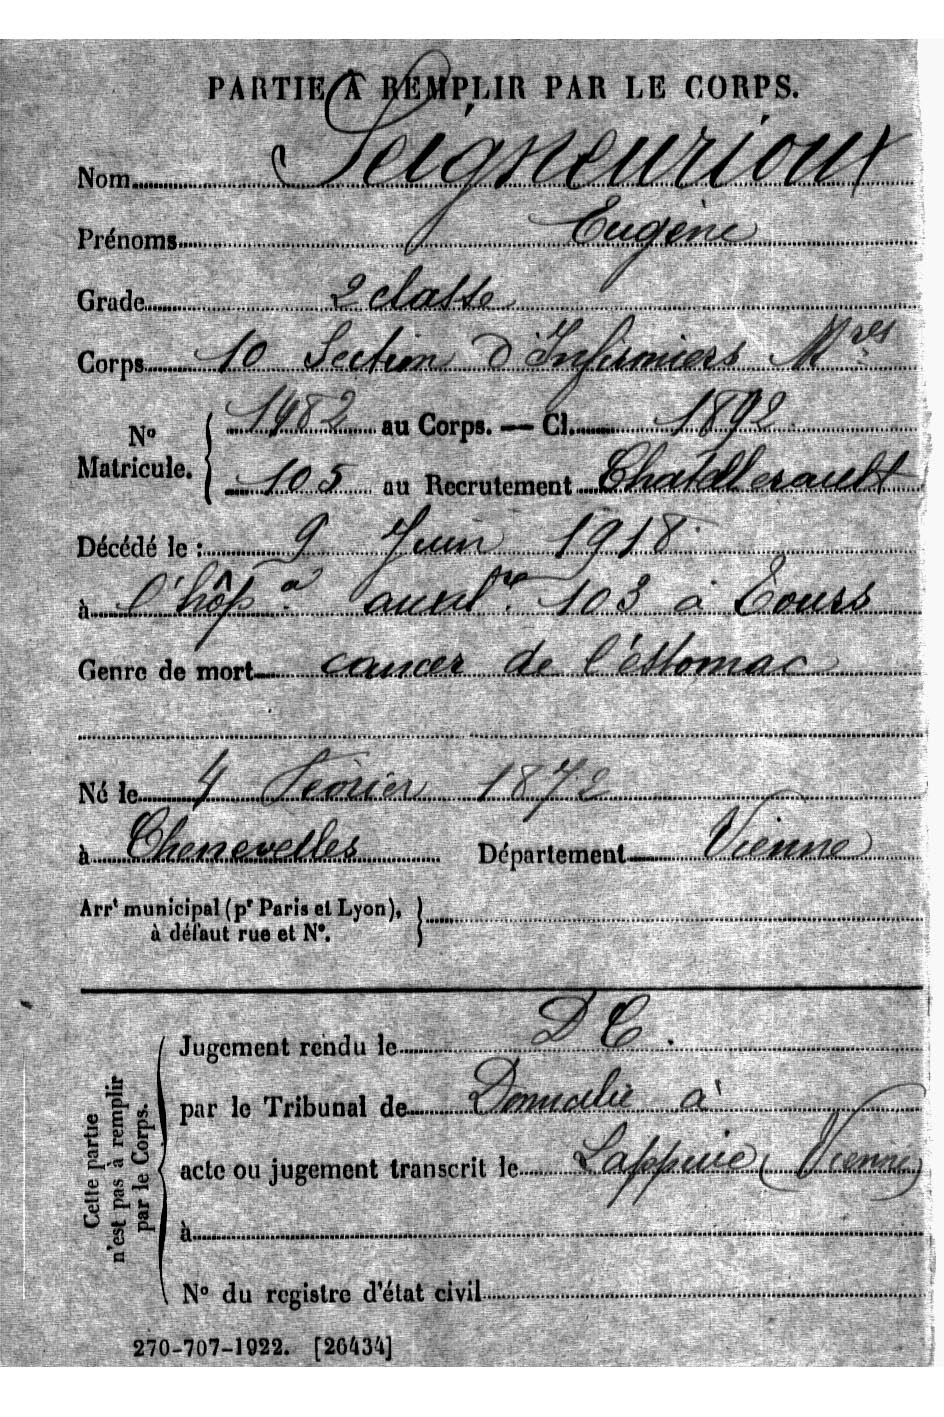 PARTIE À REMPLIR PAR LE CORPS.
Nom Seigneurioux
Prénoms Eugène
Grade 2 classe
Corps 10 Section d'Infirmiers Mres
No Matricule. 1482 au Corps. — Cl. 1892
105 au Recrutement Chatellerault
Décédé le : 9 Juin 1918
à l'hôpal auxilre 103 à Tours
Genre de mort cancer de l'éstomac
Né le 4 Février 1872
à Chenevelles Département Vienne
Arrt municipal (pr Paris et Lyon),
à défaut rue et No.
Cette partie
n'est pas à remplir
par le Corps.
Jugement rendu le D C.
par le Tribunal de Domicilié à
acte ou jugement transcrit le Lappuie (Vienne)
à
No du registre d'état civil
270-707-1922. [26434]